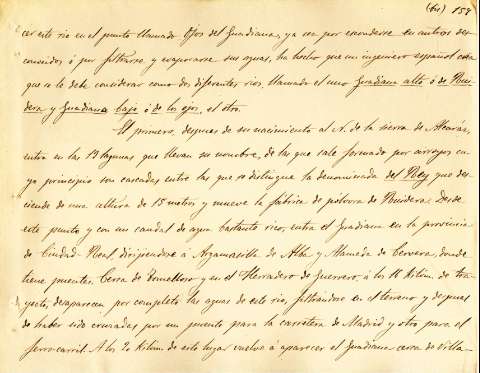 (64) 159
cer este rio en el punto llamado Ojos del Guadiana, ya sea por esconderse en ambos des-
censos ó por filtrarse y evaporarse sus aguas, ha hecho que un ingeniero español crea
que se le debe considerar como dos diferentes rios, llamado el uno Guadiana alto ó de Rui-
dera y Guadiana bajo ó de los ojos, el otro.
El primero, despues de su nacimiento al N. de la sierra de Alcaráz,
entra en las 13 lagunas que llevan su nombre, de las que sale formado por arroyos cu-
yo principio son cascadas entre las que se distingue la denominada del Rey, que des-
ciende de una altura de 15 metros y mueve la fabrica de pólvora de Ruidera. Desde
este punto y con un caudal de agua bastante rico, entra el Guadiana en la provincia
de Ciudad Real, dirigiendose á Argamasilla de Alba y Alameda de Cervera, donde
tiene puentes. Cerca de Tomelloso y en el Herradero de Guerrero, á los 11 kilom. de tra-
yecto, desaparecen por completo las aguas de este rio, filtrandose en el terreno y despues
de haber sido cruzadas por un puente para la carretera de Madrid y otro para el
ferro-carril. A los 20 kilom. de este lugar vuelve á aparecer el Guadiana cerca de Villa-